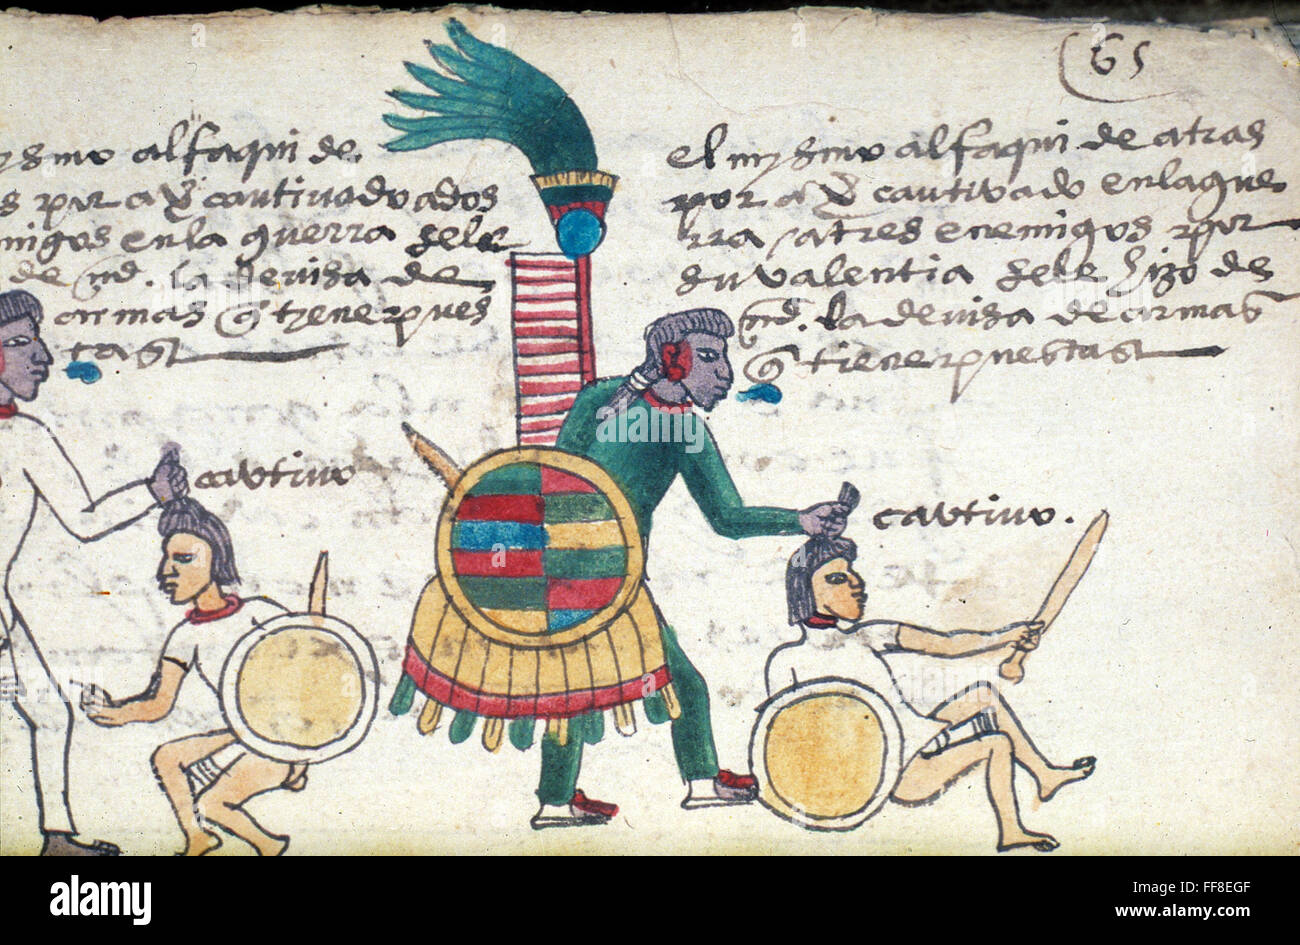 65
ysmo alfaqui de
s por aver cautivado a dos
migos en la guerra se le
de md. la devisa de
armas q tiene pues
tas
el mysmo alfaqui de atras
por aver cautivado en la gue
rra a tres enemigos por
su valentia se le hizo de
md. la devisa de armas
q tiene puestas
cautivo
cautivo.
alamy
Image ID: FF8EGF
www.alamy.com